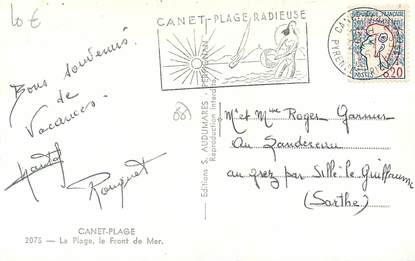 10 €
CANET-PLAGE RADIEUSE
CANET
REPUBLIQUE FRANÇAISE
POSTES 0,20
Bons souvenirs
de
Vacances.
Rouquet
Editions S. AUDUMARES - PERPIGNAN
Reproduction interdite
(66)
Mr et Mme Roger Garnier
au
au grez par Sillé-le-Guillaume
(Sarthe)
CANET-PLAGE
2075 — La Plage, le Front de Mer.